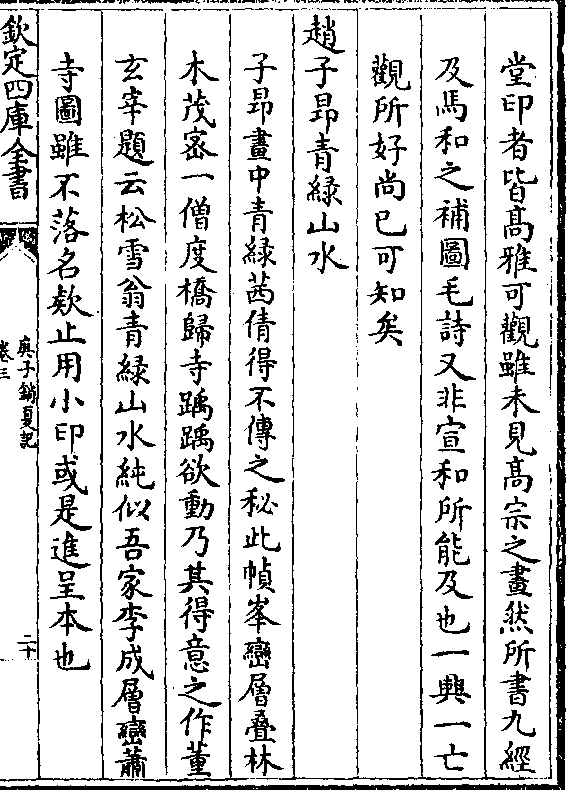 堂印者皆髙雅可觀雖未見髙宗之畫然所書九經
及馬和之補圖毛詩又非宣和所能及也一興一亡
觀所好尚已可知矣
趙子昻青緑山水
子昻畫中青緑茜倩得不傳之秘此幀峯巒層疊林
木茂宻一僧度橋歸寺踽踽欲動乃其得意之作董
玄宰題云松雪翁青緑山水純似吾家李成層巒蕭
寺圖雖不落名欵止用小印或是進呈本也
欽定四庫全書
庚子銷夏記
卷三
二十